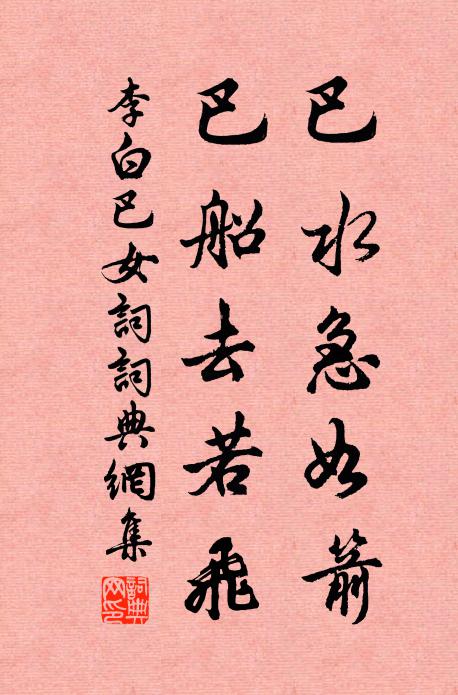 巴水急如箭
巴船去若飛
李白巴女詞詞典網集
詞典網印